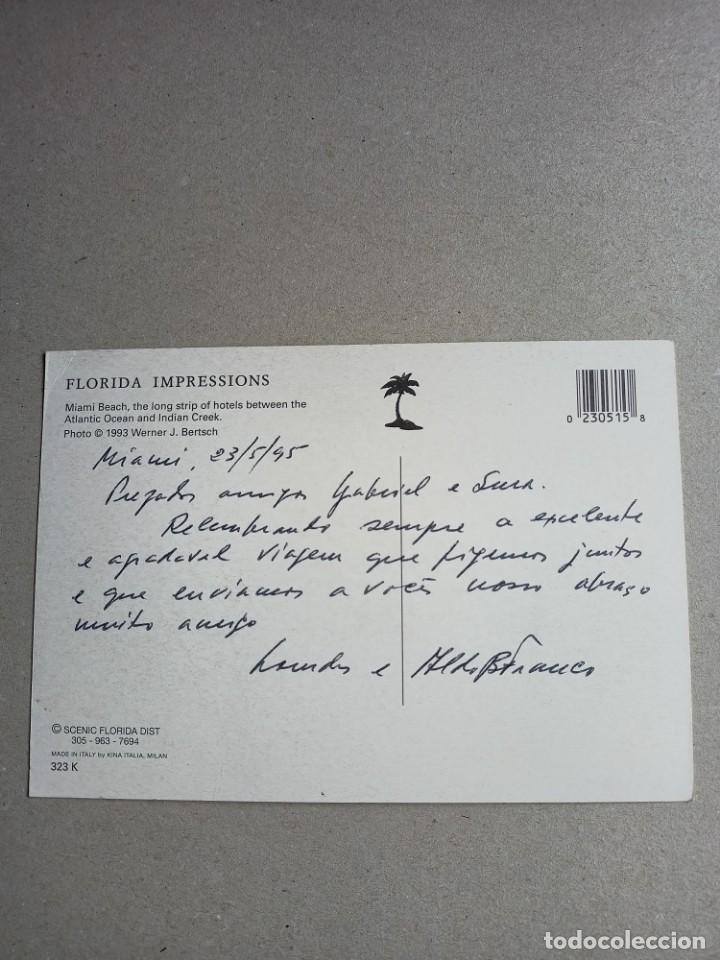 FLORIDA IMPRESSIONS
Miami Beach, the long strip of hotels between the
Atlantic Ocean and Indian Creek.
Photo © 1993 Werner J. Bertsch
0 230515 8
Miami, 23/5/95
Prezados amigos Gabriel e
Relembrando sempre a excelente
e agradavel viagem que fizemos juntos
e que enviamos a vocês nosso abraço
muito amigo
Lourdes e Aldo B Franco
© SCENIC FLORIDA DIST
305 - 963 - 7694
MADE IN ITALY by KINA ITALIA, MILAN
323 K
todocoleccion